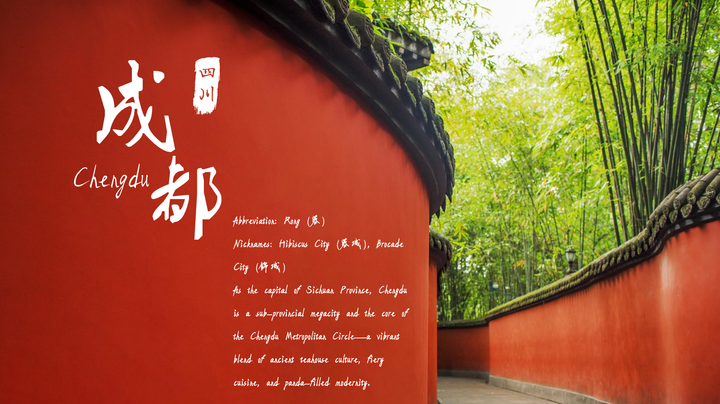 四川
成都
Chengdu
Abbreviation: Rong (蓉)
Nicknames: Hibiscus City (蓉城), Brocade
City (锦城)
As the capital of Sichuan Province, Chengdu
is a sub-provincial megacity and the core of
the Chengdu Metropolitan Circle—a vibrant
blend of ancient teahouse culture, fiery
cuisine, and panda-filled modernity.